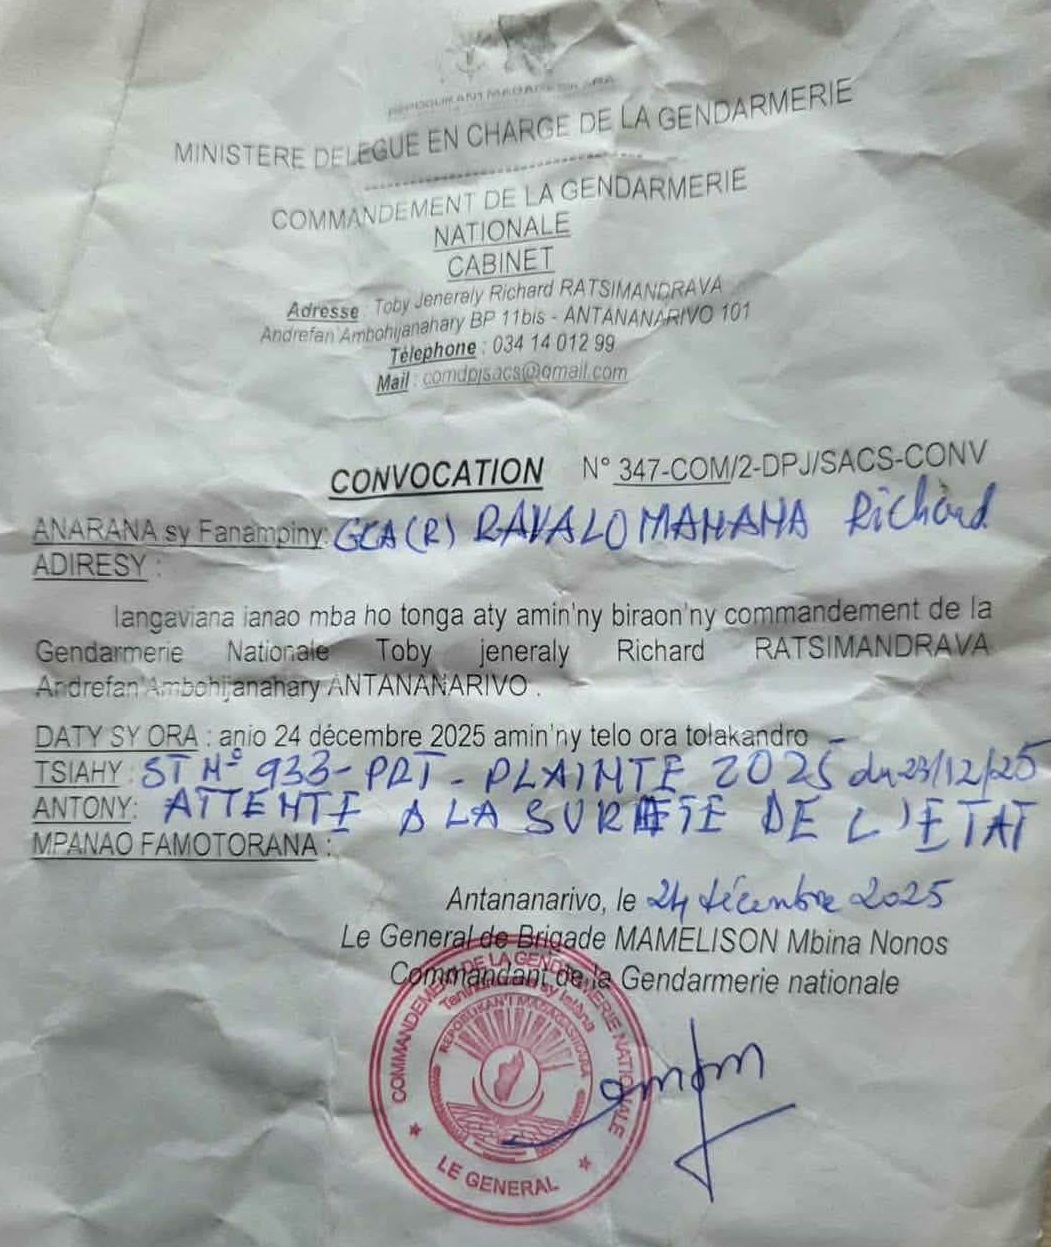 REPOBLIKAN'I MADAGASIKARA
MINISTERE DELEGUE EN CHARGE DE LA GENDARMERIE
COMMANDEMENT DE LA GENDARMERIE
NATIONALE
CABINET
Adresse : Toby Jeneraly Richard RATSIMANDRAVA
Andrefan'Ambohijanahary BP 11bis - ANTANANARIVO 101
Télephone : 034 14 012 99
Mail : comdpjsacs@gmail.com
CONVOCATION N° 347-COM/2-DPJ/SACS-CONV
ANARANA sy Fanampiny: GCA (R) RAVALOMANANA Richard
ADIRESY :
Iangaviana ianao mba ho tonga aty amin'ny biraon'ny commandement de la
Gendarmerie Nationale Toby jeneraly Richard RATSIMANDRAVA
Andrefan'Ambohijanahary ANTANANARIVO .
DATY SY ORA : anio 24 décembre 2025 amin'ny telo ora tolakandro
TSIAHY : ST N° 933-PRT-PLAINTE 2025 du 23/12/25
ANTONY: ATTENTE A LA SURETE DE L'ETAT
MPANAO FAMOTORANA :
Antananarivo, le 24 décembre 2025
Le General de Brigade MAMELISON Mbina Nonos
Commandant de la Gendarmerie nationale
COMMANDEMENT DE LA GENDARMERIE NATIONALE
REPOBLIKAN'I MADAGASIKARA
LE GENERAL